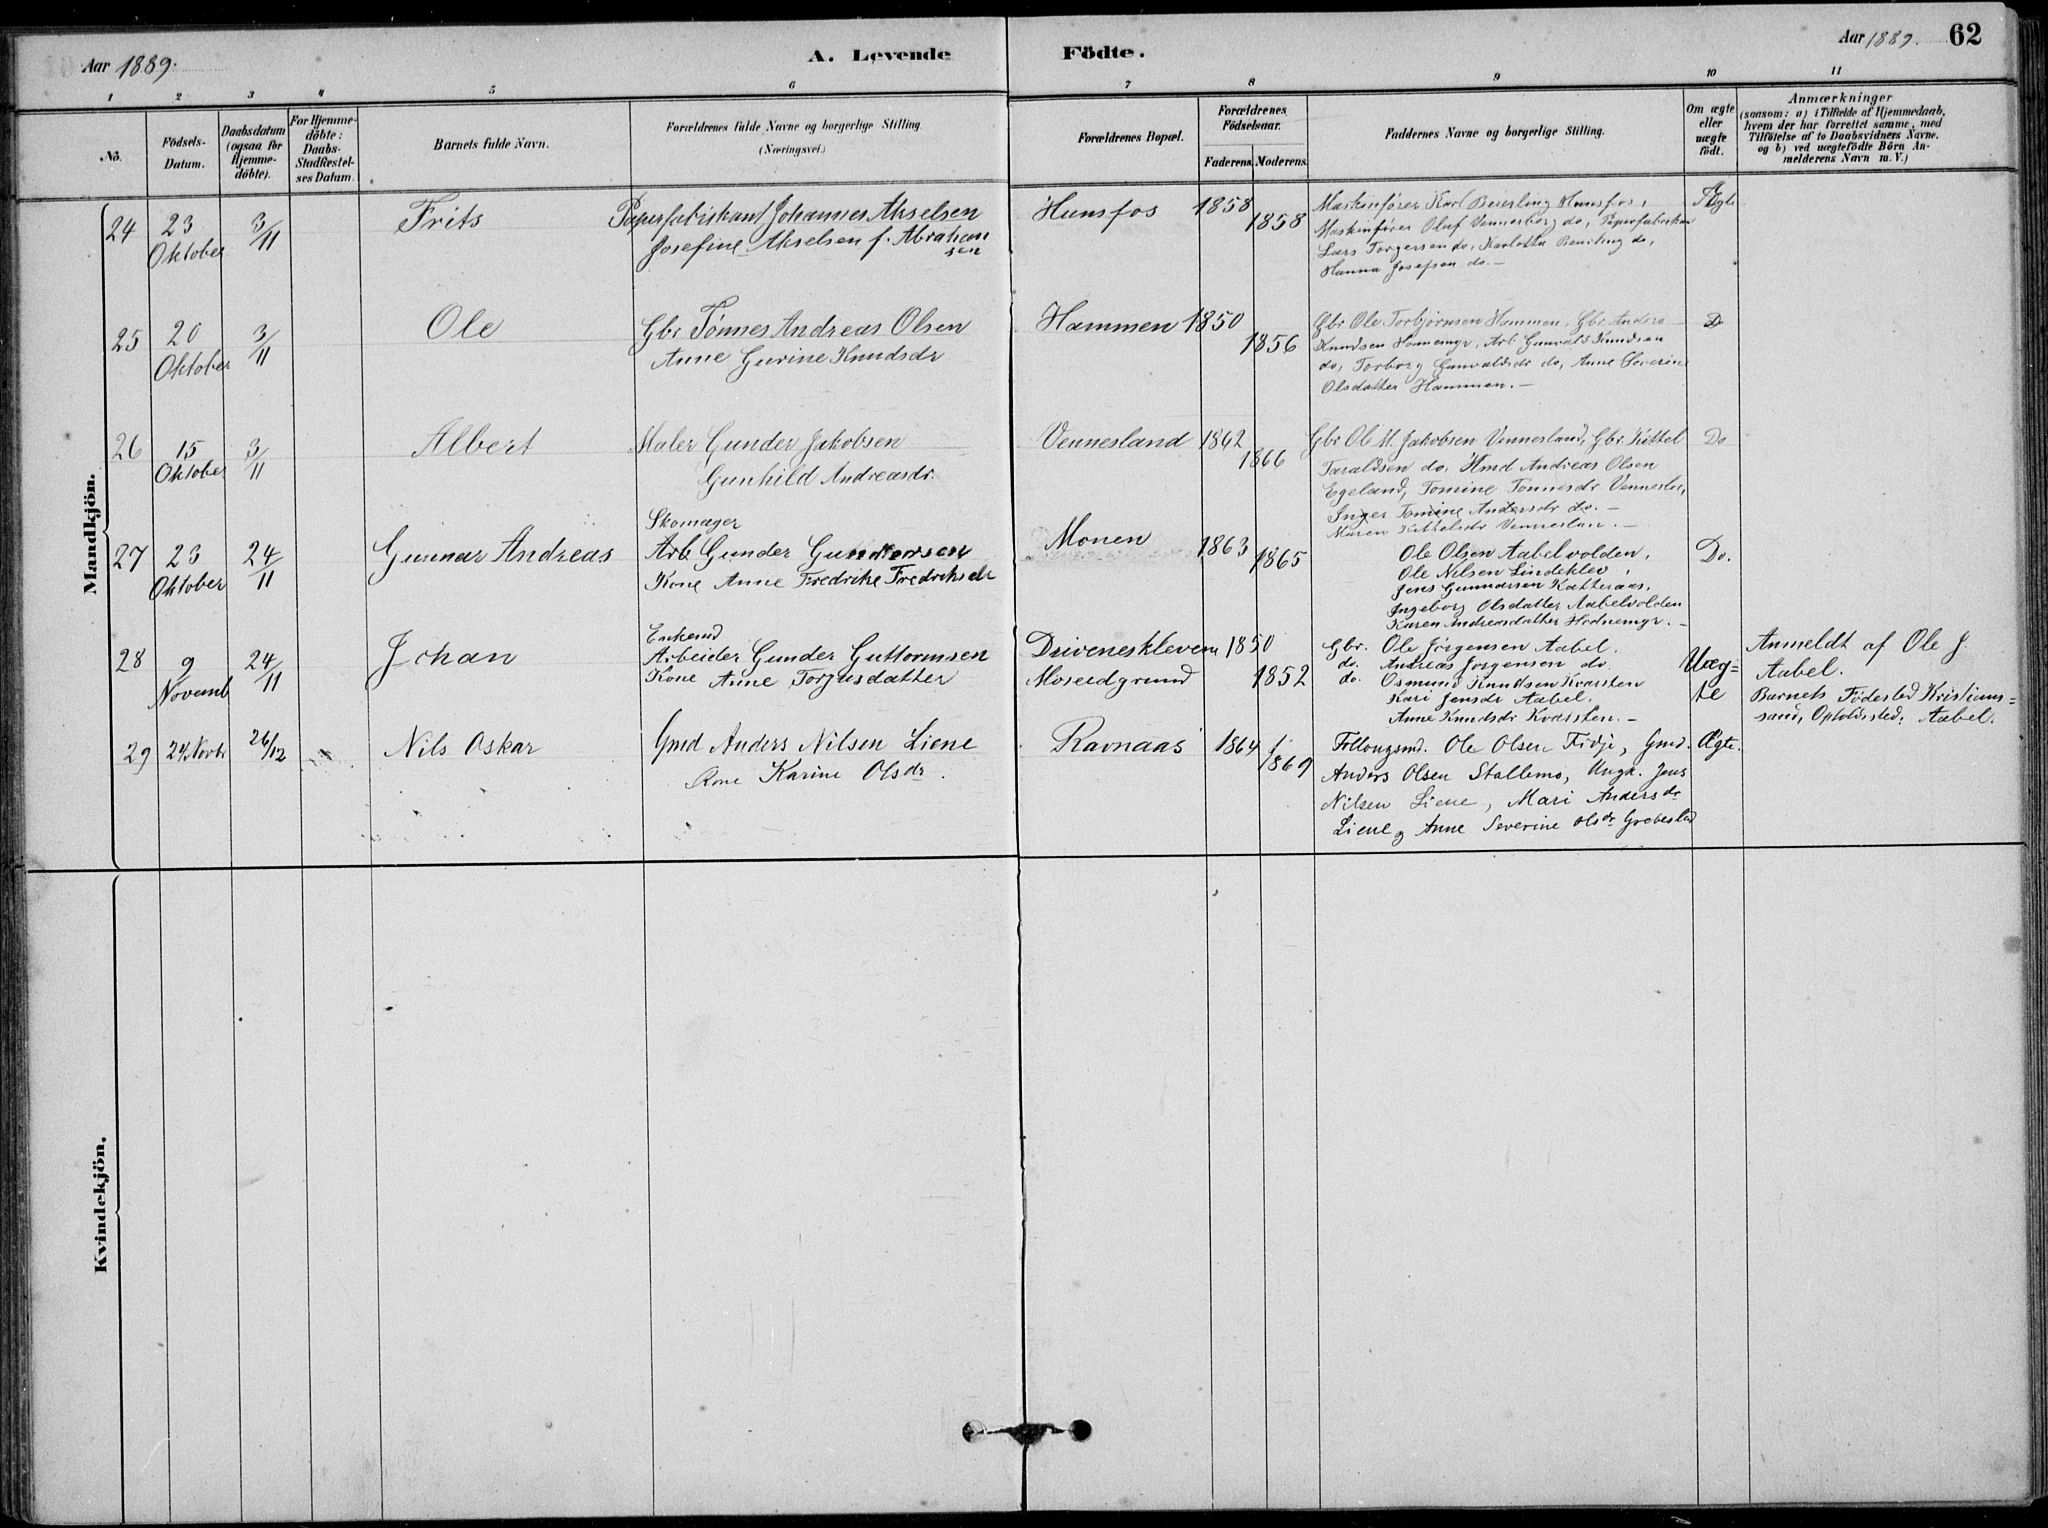 Aar 1889.
A. Levende Födte.
Aar 1889.
62
1 2 3 4 5 6 7 8 9 10 11
No.
Födsels-Datum.
Daabsdatum (ogsaa for Hjemme-döbte).
For Hjemme-döbte: Daabs-Stadfæstel-ses Datum.
Barnets fulde Navn.
Forældrenes fulde Navne og borgerlige Stilling.
(Næringsvei.)
Forældrenes Bopæl.
Forældrenes Födselsaar.
Faderens. Moderens.
Faddernes Navne og borgerlige Stilling.
Om ægte eller uægte födt.
Anmærkninger
(saasom: a) i Tilfælde af Hjemmedaab,
hvem der har forrettet samme, med
Tilföielse af to Daabsvidners Navne.
og b) ved uægtefödte Börn An-
melderens Navn m. V.)
Mandkjön.
24 23 Oktober 3/11 Frits
Papirfabrikant Johannes Akselsen
Josefine Akselsen f. Abraham
sen
Hunsfos 1858 1858
Maskinfører Karl Beierling Hunsfos,
Maskinfører Oluf Vennerborg do, Papirfabrikan
Lars Torgersen do, Karlotta Beierling do,
Hanna Josefsen do. —
Ægte
25 20 Oktober 3/11 Ole
Gbr Tønnes Andreas Olsen
Anne Gurine Knudsdr
Hammen 1850 1856
Gbr Ole Torbjørnsen Hammen, Gbr Anders
Knudsen Homemyr, Arb Gunvald Knudsen
do, Torborg Gunvaldsdr do, Anne Severine
Olsdatter Hammen. —
Do
26 15 Oktober 3/11 Albert
Maler Gunder Jakobsen
Gunhild Andreasdr.
Vennesland 1862 1866
Gbr Ole M. Jakobsen Vennesland, Gbr Kittel
Taraldsen do, Hmd Andreas Olsen
Egeland, Tomine Tønnesdr Vennesla,
Inger Tomine Andersdr do. —
Maren Kittelsdr Venneslan. —
Do
27 23 Oktober 24/11 Gunnar Andreas
Skomager
Arb Gunder Gundersen
Kone Anne Fredrike Fredriksdr
Monen 1863 1865
Ole Olsen Aabelvolden,
Ole Nilsen Lindeklev,
Jens Gunnarsen Katteraas,
Ingeborg Olsdatter Aabelvolden
Karen Andreasdatter Hodnemyr. —
Do.
28 9 Novemb 24/11 Johan
Enkemd
Arbeider Gunder Guttormsen
Kone Anne Torjusdatter
Driveneskleven 1850
Moseidgrund 1852
Gbr. Ole Jørgensen Aabel.
do. Andreas Jørgensen do
do. Osmund Knudsen Kvarsten
Kari Jensdr Aabel.
Anne Knudsdr Kvarsten. —
Uæg=
te
Anmeldt af Ole J.
Aabel.
Barnets Fødested Kristians=
sand, Opholdssted, Aabel.
29 24 Novbr 26/12 Nils Oskar
Gmd Anders Nilsen Liene
Kone Karine Olsdr.
Ravnaas 1864 1869
Follougsmd. Ole Olsen Fidje, Gmd.
Anders Olsen Stallemo, Ungk. Jens
Nilsen Liene, Mari Andersdr
Liene og Anne Severine Olsdr Grebestad
Ægte.
Kvindekjön.